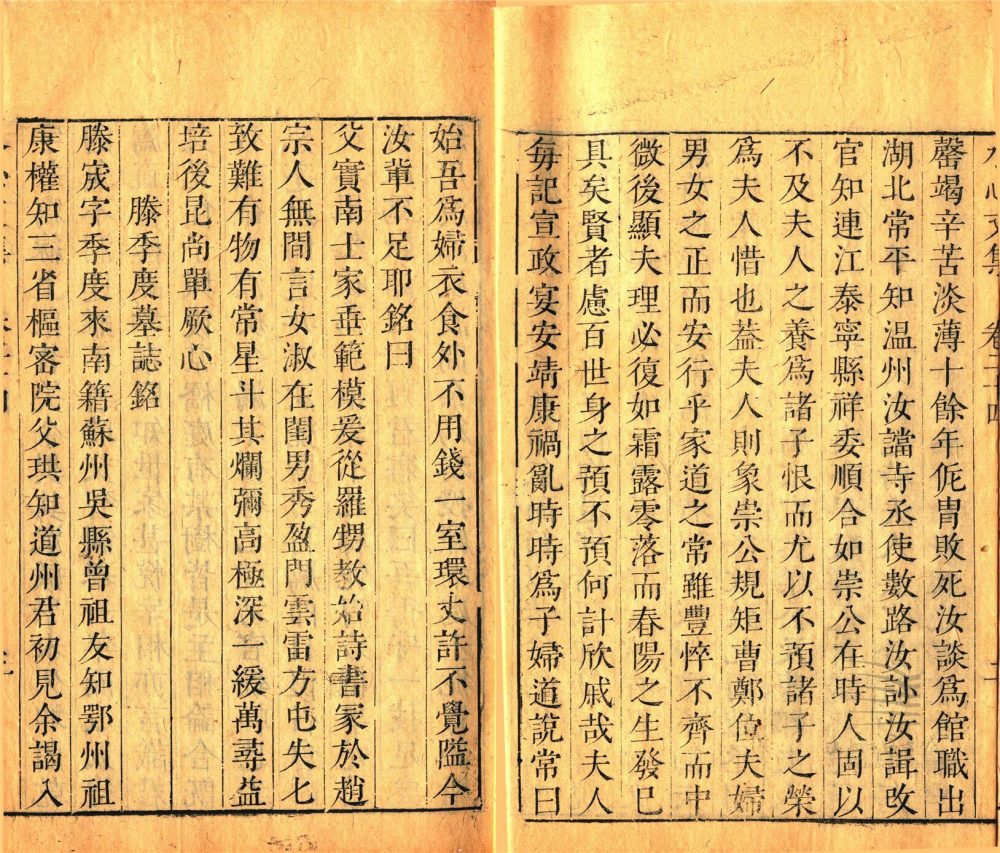 罄竭辛苦淡薄十餘年侂胄敗死汝談爲館職出
湖北常平知温州汝讜寺丞使數路汝訃汝諿改
官知連江泰寧縣祥委順合如崇公在時人固以
不及夫人之養爲諸子恨而尤以不預諸子之榮
爲夫人惜也葢夫人則象崇公規矩曹鄭位夫婦
男女之正而安行乎家道之常雖豐悴不齊而中
微後顯夫理必復如霜露零落而春陽之生發已
具矣賢者慮百世身之預不預何計欣戚哉夫人
每記宣政宴安靖康禍亂時時爲子婦道說常曰
始吾爲婦衣食外不用錢一室環丈許不覺隘今
汝輩不足耶銘曰
父實南士家垂範模爰從羅甥教始詩書冡於趙
宗人無間言女淑在閨男秀盈門雲雷方屯失匕
致難有物有常星斗其爛彌高極深一緩萬尋益
培後昆尚單厥心
滕季度墓誌銘
滕宬字季度來南籍蘇州吳縣曾祖友知鄂州祖
康權知三省樞密院父珙知道州君初見余謁入